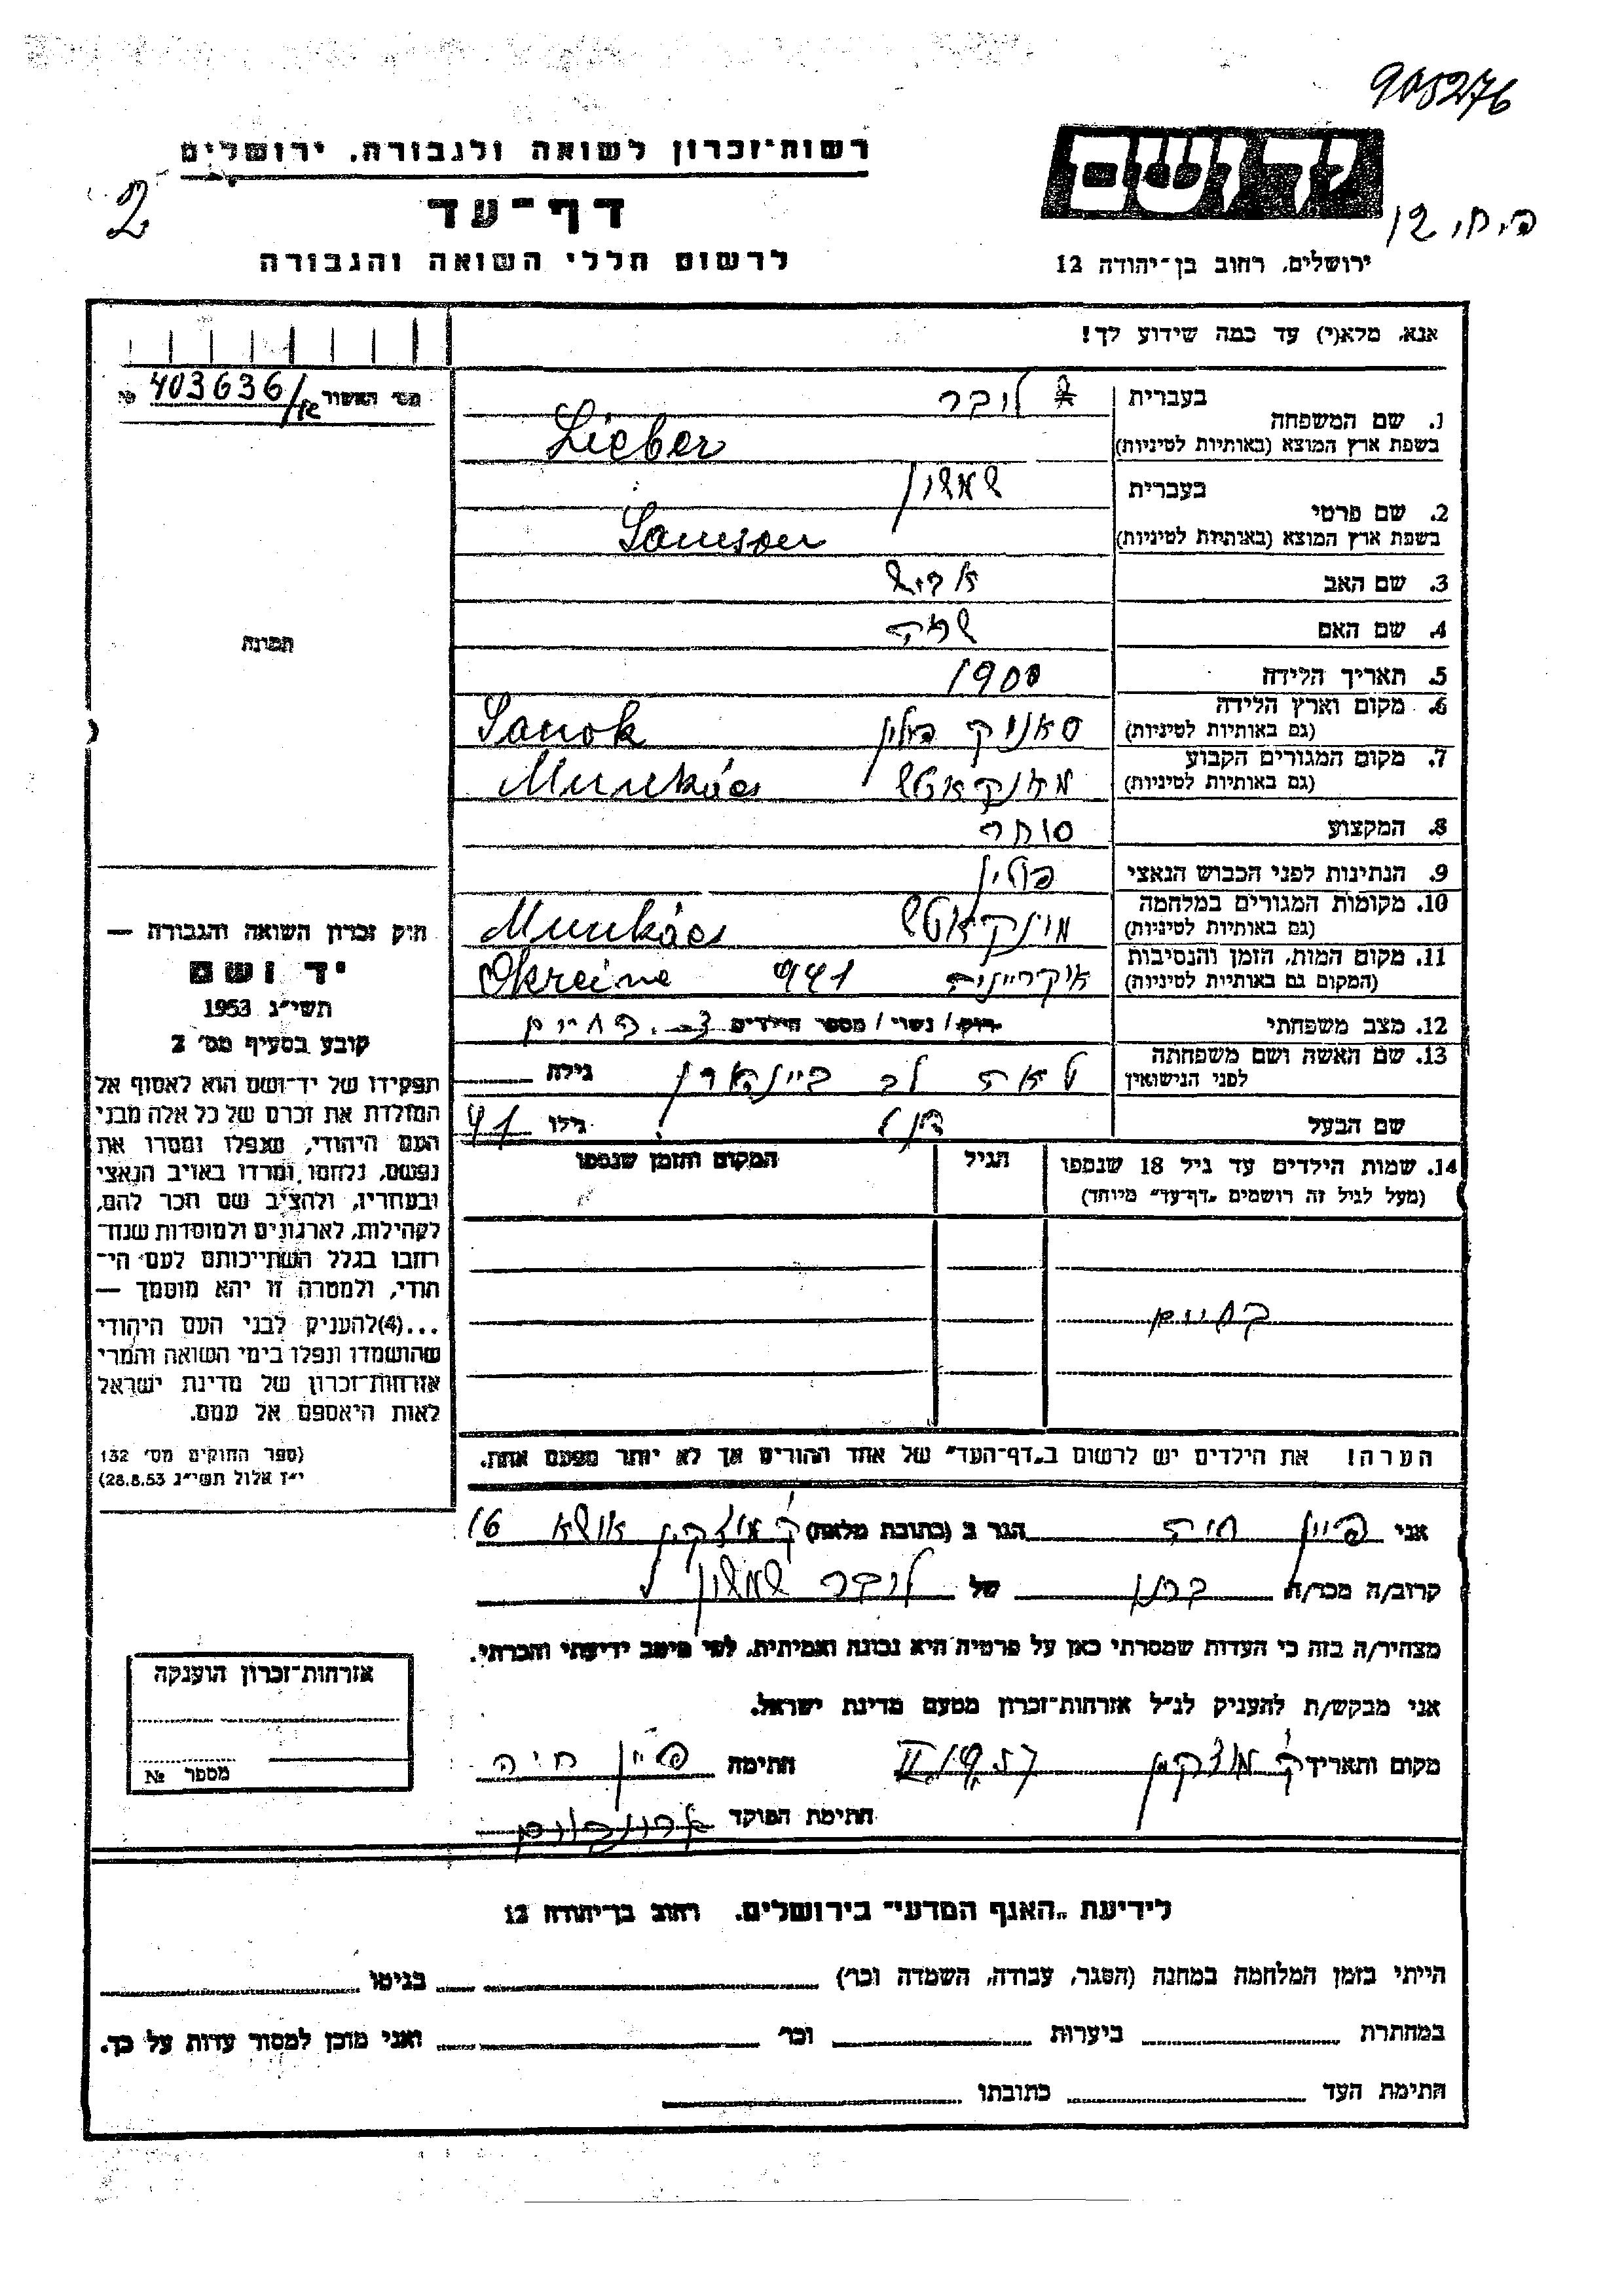 905276
רשות־זכרון לשואה ולגבורה, ירושלים
יד ושם
2
דף־עד
לרשום חללי השואה והגבורה
ירושלים, רחוב בן־יהודה 12
אנא, מלא(י) עד כמה שידוע לך!
מס׳ האשור 403636 №
1. שם המשפחה בעברית ליבר
בשפת ארץ המוצא (באותיות לטיניות) Lieber
2. שם פרטי בעברית שמשון
בשפת ארץ המוצא (באותיות לטיניות) Samson
3. שם האב
4. שם האם שרה
5. תאריך הלידה 1900
6. מקום וארץ הלידה (גם באותיות לטיניות) סאניק פולין Sanok
7. מקום המגורים הקבוע (גם באותיות לטיניות) מונקאטש Munkács
8. המקצוע סוחר
9. הנתינות לפני הכבוש הנאצי פולין
10. מקומות המגורים במלחמה (גם באותיות לטיניות) מונקאטש Munkács
11. מקום המות, הזמן והנסיבות (המקום גם באותיות לטיניות) אוקריינה 941 Okreine
12. מצב משפחתי רוק / נשוי / מספר הילדים בחיים
13. שם האשה ושם משפחתה לפני הנישואין לאה לב גילה
שם הבעל גילו 41
14. שמות הילדים עד גיל 18 שנספו הגיל המקום והזמן שנספו
(מעל לגיל זה רושמים „דף־עד״ מיוחד)
בחיים
הערה! את הילדים יש לרשום ב„דף־העד״ של אחד ההורים אך לא יותר מפעם אחת.
תמונה
חוק זכרון השואה והגבורה —
יד ושם
תשי״ג 1953
קובע בסעיף מס׳ 2
תפקידו של יד־ושם הוא לאסוף אל
המולדת את זכרם של כל אלה מבני
העם היהודי, שנפלו ומסרו את
נפשם, נלחמו ומרדו באויב הנאצי
ובעוזריו, ולהציב שם וזכר להם,
לקהילות, לארגונים ולמוסדות שנח־
רבו בגלל השתייכותם לעם הי־
הודי, ולמטרה זו יהא מוסמך —
...(4) להעניק לבני העם היהודי
שהושמדו ונפלו בימי השואה והמרי
אזרחות־זכרון של מדינת ישראל
לאות היאספם אל עמם.
(ספר החוקים מס׳ 132
י״ז אלול תשי״ג 28.8.53)
אני פיין חיה הגר ב (כתובת מלאה) ק מוצקין אושא 16
קרוב/ה מכר/ה של ליבר שמשון
מצהיר/ה בזה כי העדות שמסרתי כאן על פרטיה היא נכונה ואמיתית, לפי מיטב ידיעתי והכרתי.
אני מבקש/ת להעניק לנ״ל אזרחות־זכרון מטעם מדינת ישראל.
מקום ותאריך ק מוצקין חתימה פיין חיה
חתימת הפוקד
אזרחות־זכרון הוענקה
מספר №
לידיעת „האגף המדעי״ בירושלים, רחוב בן־יהודה 12
הייתי בזמן המלחמה במחנה (הסגר, עבודה, השמדה וכו׳) בגיטו
במחתרת ביערות וכו׳ ואני מוכן למסור עדות על כך.
חתימת העד כתובתו